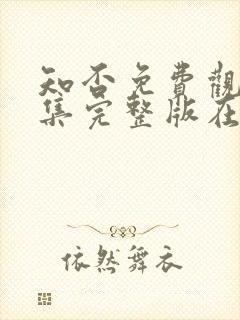 知否免費觀
集完整版在
依然舞衣